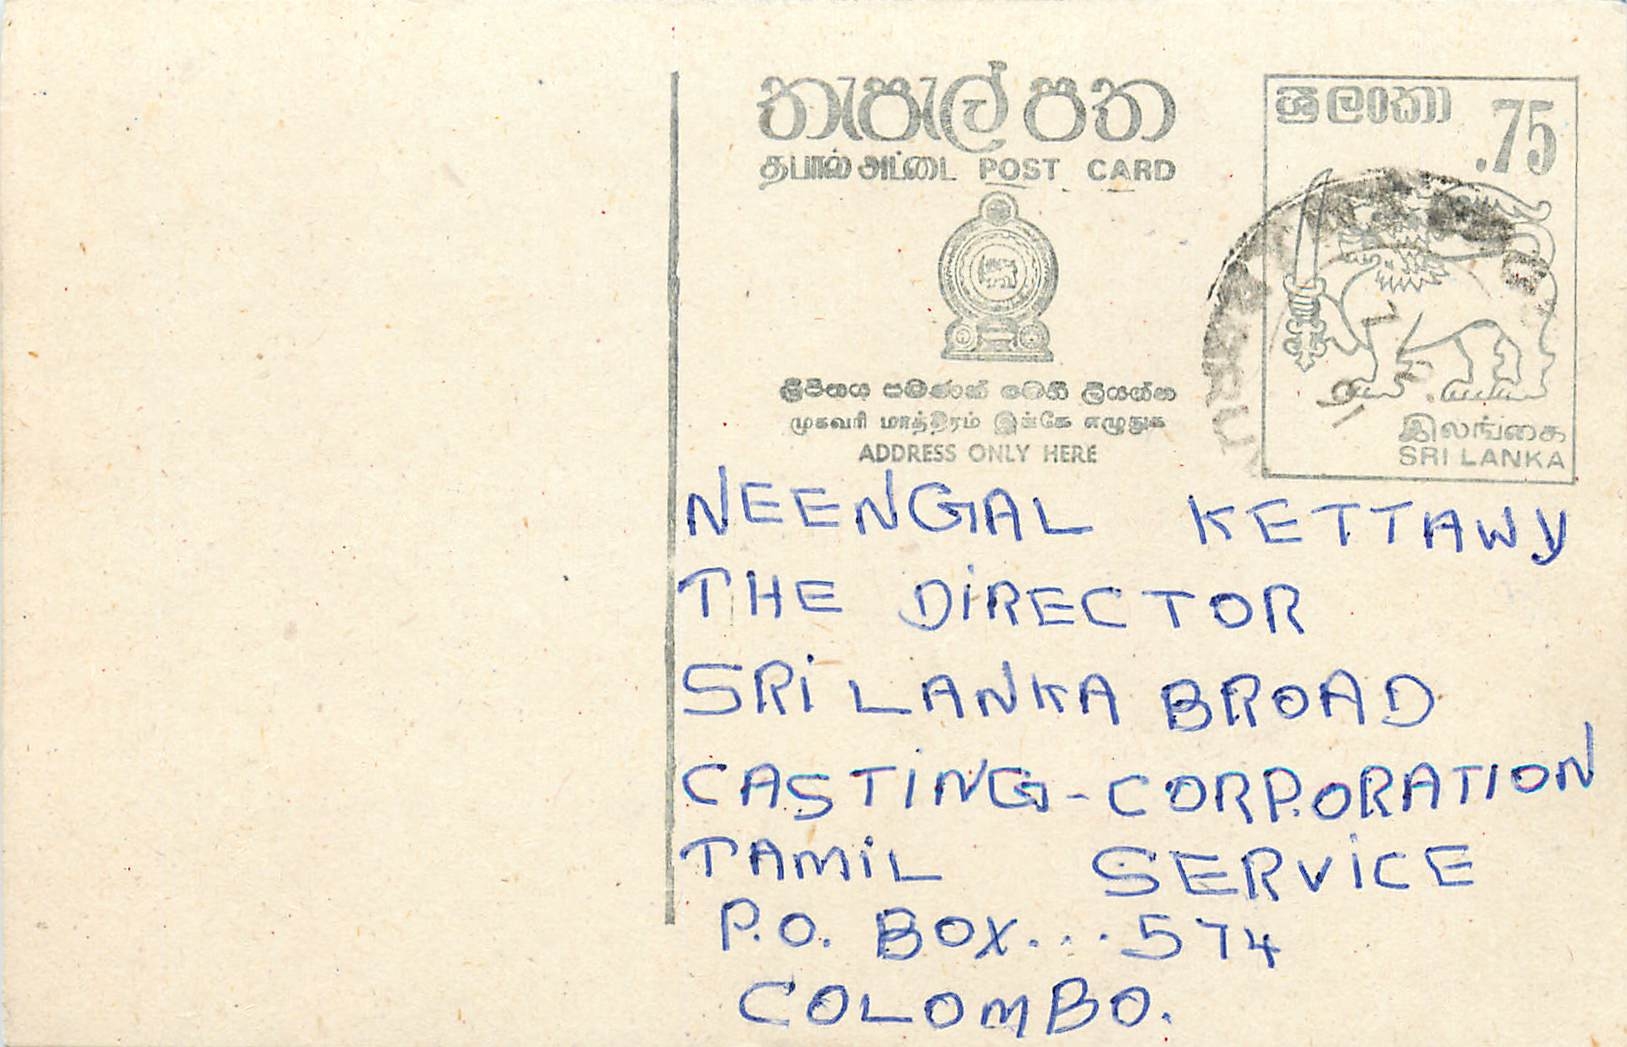 තැපැල් පත
தபால் அட்டை POST CARD
ශ්‍රී ලංකා .75
இலங்கை
SRI LANKA
ලිපිනය පමණක් මෙහි ලියන්න
முகவரி மாத்திரம் இங்கே எழுதுக
ADDRESS ONLY HERE
NEENGAL KETTAWY
THE DIRECTOR
SRI LANKA BROAD
CASTING-CORPORATION
TAMIL SERVICE
P.O. BOX... 574
COLOMBO.